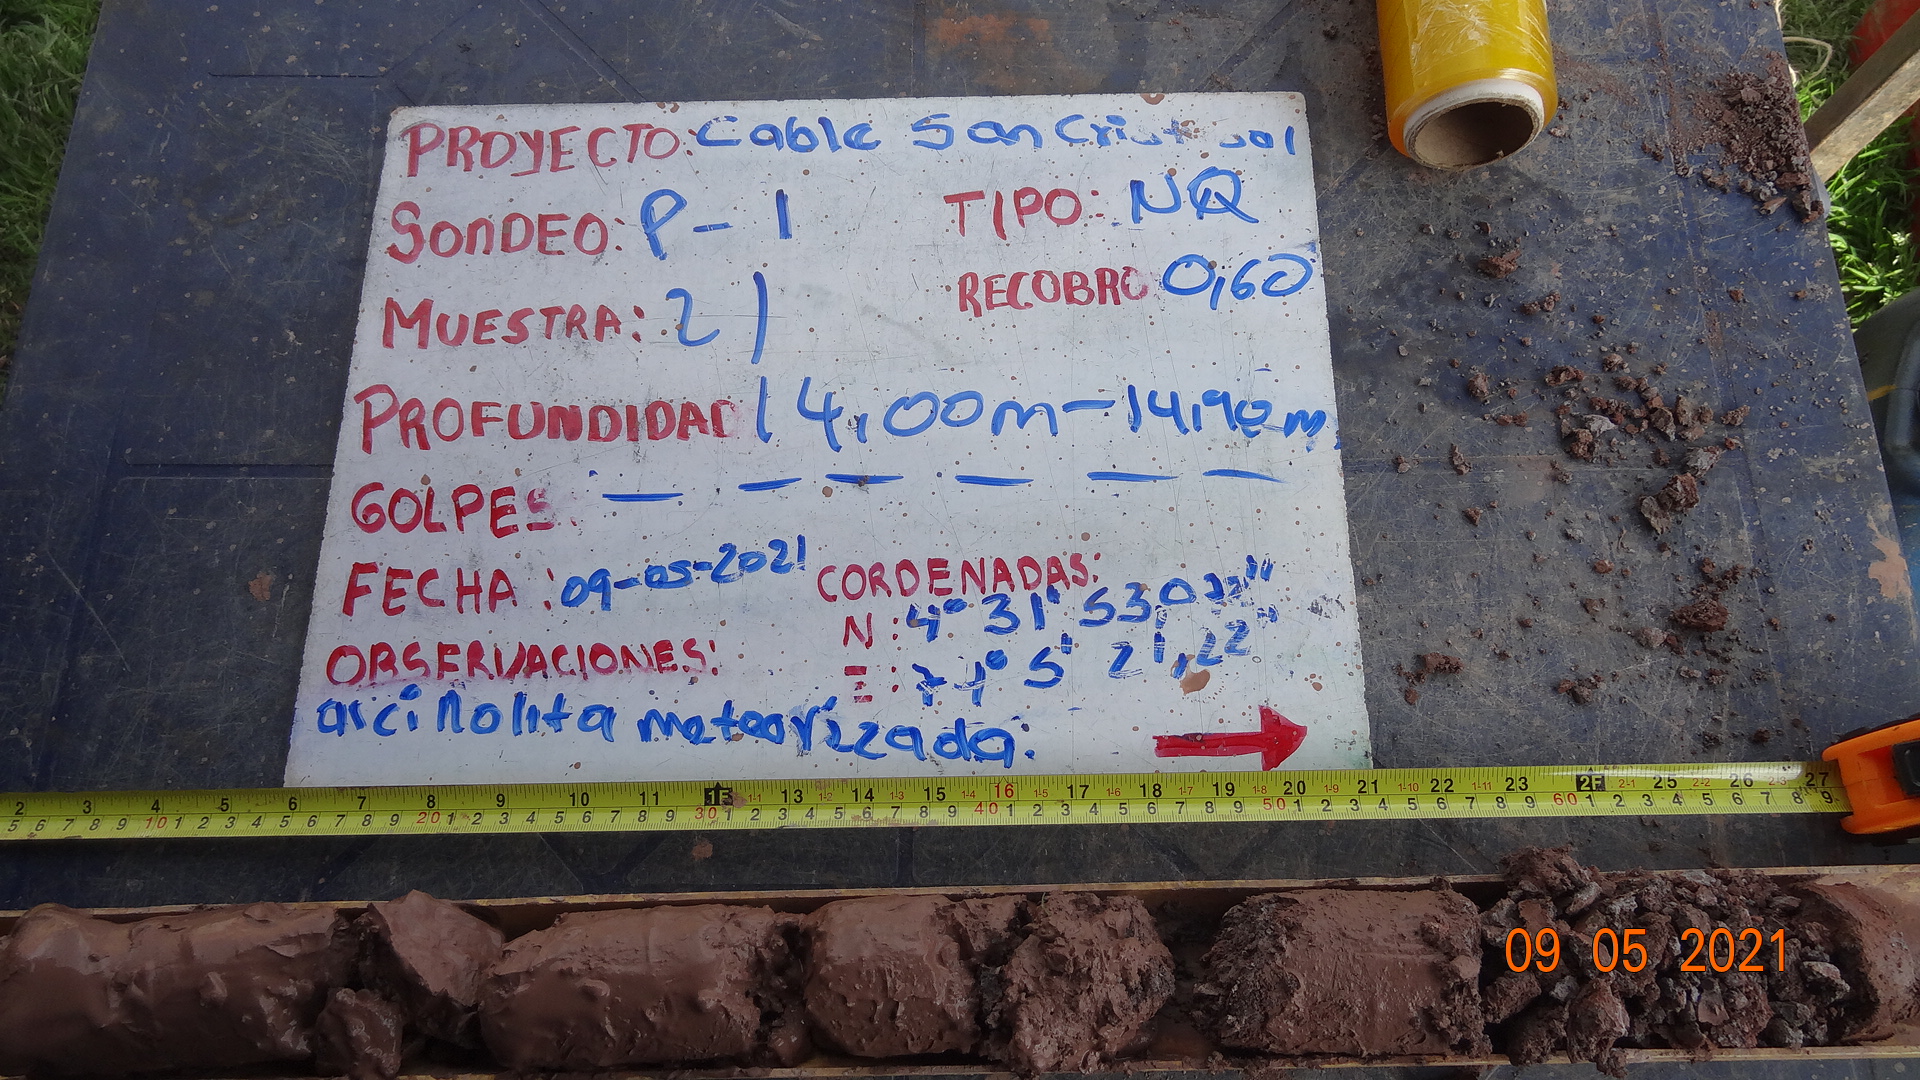 PROYECTO: Cable San Cristobal
SONDEO: P-1 TIPO: NQ
MUESTRA: 21 RECOBRO 0,60
PROFUNDIDAD 14,00m-14,90m
GOLPES: — — — — — —
FECHA: 09-05-2021 CORDENADAS:
N: 4° 31' 53,
E: 74° 5' 21,22"
OBSERVACIONES:
arcillolita meteorizada:
2 3 4 5 6 7 8 9 10 11 1F 13 14 15 16 17 18 19 20 21 22 23 2F 25 26 27
09 05 2021